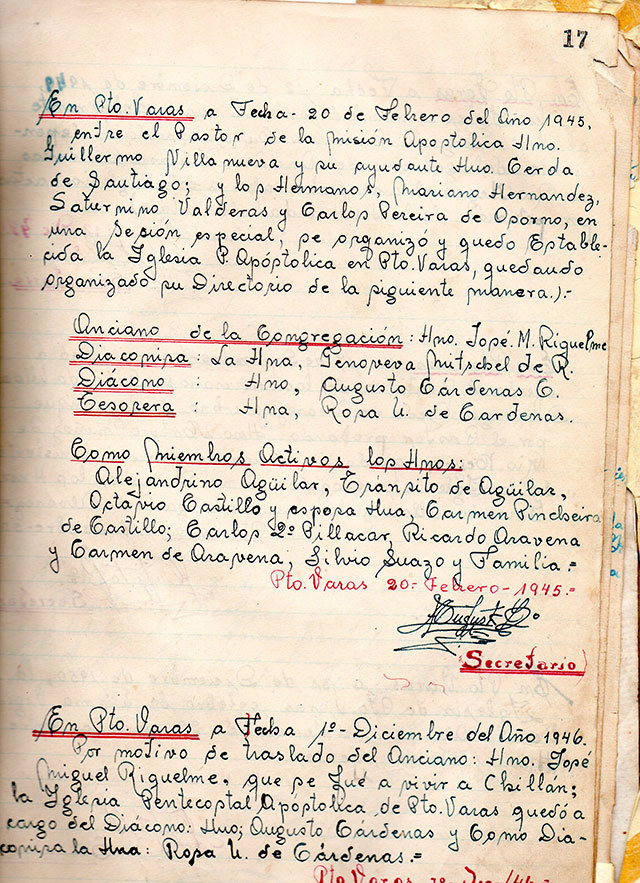 17
En Pto. Varas a Fecha- 20 de Febrero del Año 1945,
entre el Pastor de la Misión Apostolica Hno.
Guillermo Villanueva y su ayudante Hno. Cerda
de Santiago; y los Hermanos, Mariano Hernandez,
Saturnino Valderas y Carlos Pereira de Oporno, en
una Sesión especial, se organizó y quedo Estable-
cida la Iglesia P. Apóstolica en Pto. Varas, quedando
organizado su Directorio de la siguiente manera.):-
Anciano de la Congregación: Hno. José. M. Riquelme
Diaconisa: La Hna, Genoveva Mitschel de R.
Diácono Hno, Augusto Cárdenas C.
Tesorera : Hna, Rosa U. de Cardenas.
Como Miembros Activos los Hnos:
Alejandrino Agüilar, Tránsito de Agüilar,
Octavio Castillo y esposa Hna, Carmen Pincheira
de Castillo; Carlos 2º Pillacar, Ricardo Aravena
y Carmen de Aravena, Silvio Suazo y Familia.=
Pto. Varas 20.- Febrero-1945.=
Secretario
En Pto. Varas a Fecha 1º- Diciembre del Año 1946.
Por motivo de traslado del Anciano: Hno. José
Miguel Riquelme, que se fué a vivir a Chillán;
la Iglesia Pentecostal Apóstolica de Pto. Varas quedó a
cargo del Diácono: Hno; Augusto Cárdenas y Como Dia-
conisa la Hna: Rosa U. de Cárdenas.=
Pto. Varas